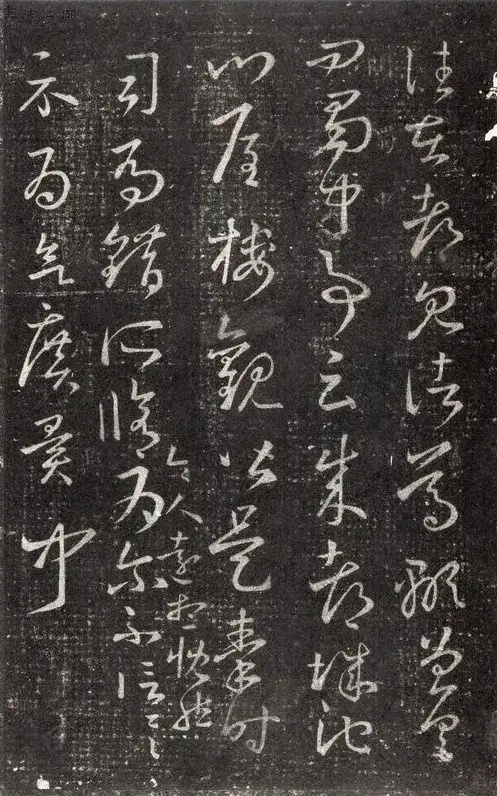 往在都見諸葛顒曾具
問蜀中事云成都城池
門屋樓觀皆是秦時
司馬錯所脩令人遠想慨然為爾不信一一
示為欲廣異聞